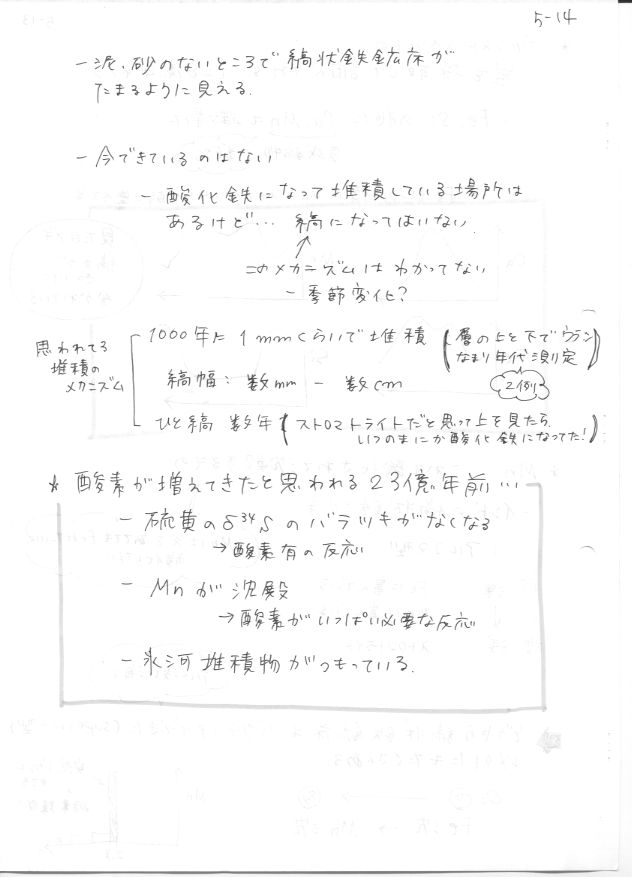 5-14
- 泥、砂のないところで縞状鉄鉱床が
たまるように見える.
- 今できているのはない
- 酸化鉄になって堆積している場所は
あるけど… 縞になってはいない.
このメカニズムはわかってない
- 季節変化?
思われてる
堆積の
メカニズム
1000年に1mmくらいで堆積
(層の上と下でウラン
なまり年代測定)
2例
縞幅: 数mm - 数cm
ひと縞 数年
(ストロマトライトだと思って上を見たら、
いつのまにか酸化鉄になってた!)
☆ 酸素が増えてきたと思われる23億年前…
- 硫黄のδ³⁴Sのバラツキがなくなる
→酸素有の反応
- Mnが沈殿
→酸素がいっぱい必要な反応
- 氷河堆積物がつもっている.